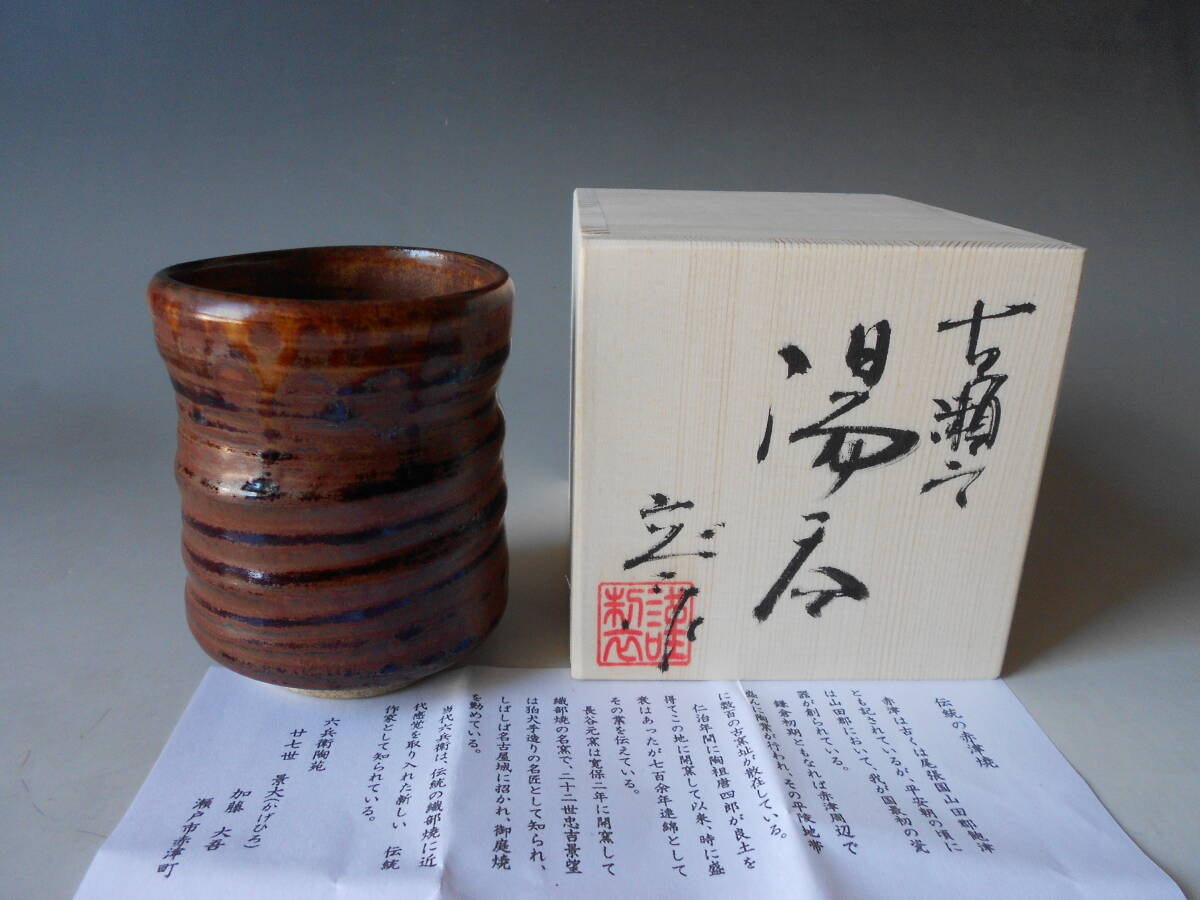 古瀬戸
湯呑
伝統の赤津焼
赤津は古くは尾張国山田郡飽津
とも記されているが、平安朝の頃に
は山田郡において、我が国最初の瓷
器が創られている。
鎌倉初期ともなれば赤津周辺で
盛んに陶業が行われ、その平陵地帯
に数百の古窯址が散在している。
仁治年間に陶祖唐四郎が良土を
得てこの地に開窯して以来、時に盛
衰はあったが七百余年連綿として
その業を伝えている。
長谷元窯は寛保二年に開窯して
織部焼の名窯で、二十二世忠吉景望
は狛犬手造りの名匠として知られ、
しばしば名古屋城に招かれ、御庭焼
を勤めている。
当代六兵衛は、伝統の織部焼に近
代感覚を取り入れた新しい 伝統
作家として知られている。
六兵衛陶苑
廿七世 景大(かげひろ)
加藤 大吾
瀬戸市赤津町